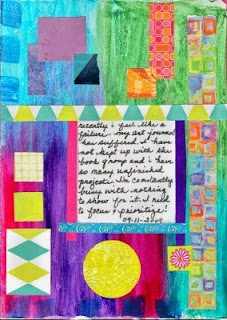 recently i feel like a
failure. my art journal
has suffered. i have
not kept up with the
book group and i have
so many unfinished
projects. I'm constantly
busy with nothing
to show for it. I need
to focus & prioritize!
09-11-2009